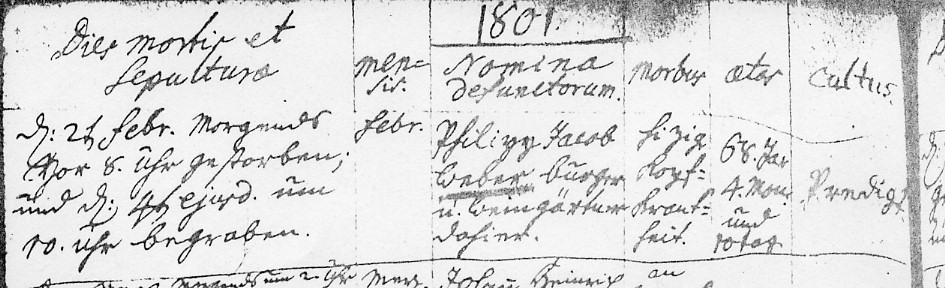 1801.
Dies mortis et
sepulturæ
men=
sis.
Nomina
defunctorum.
morbus
ætas
Cultus.
d: 2t Febr. Morgends
Vor 8. Uhr gestorben;
und d: 4t ejusd. um
10. Uhr begraben.
Febr.
Philipp Jacob
Weber burger
u. Weingärtner
dahier.
hizig
Kopf=
Krank=
heit.
68. Jar
4. Mon.
und
10 tag
Predigt
Morgends um 2. Uhr
Johan Heinrich
an